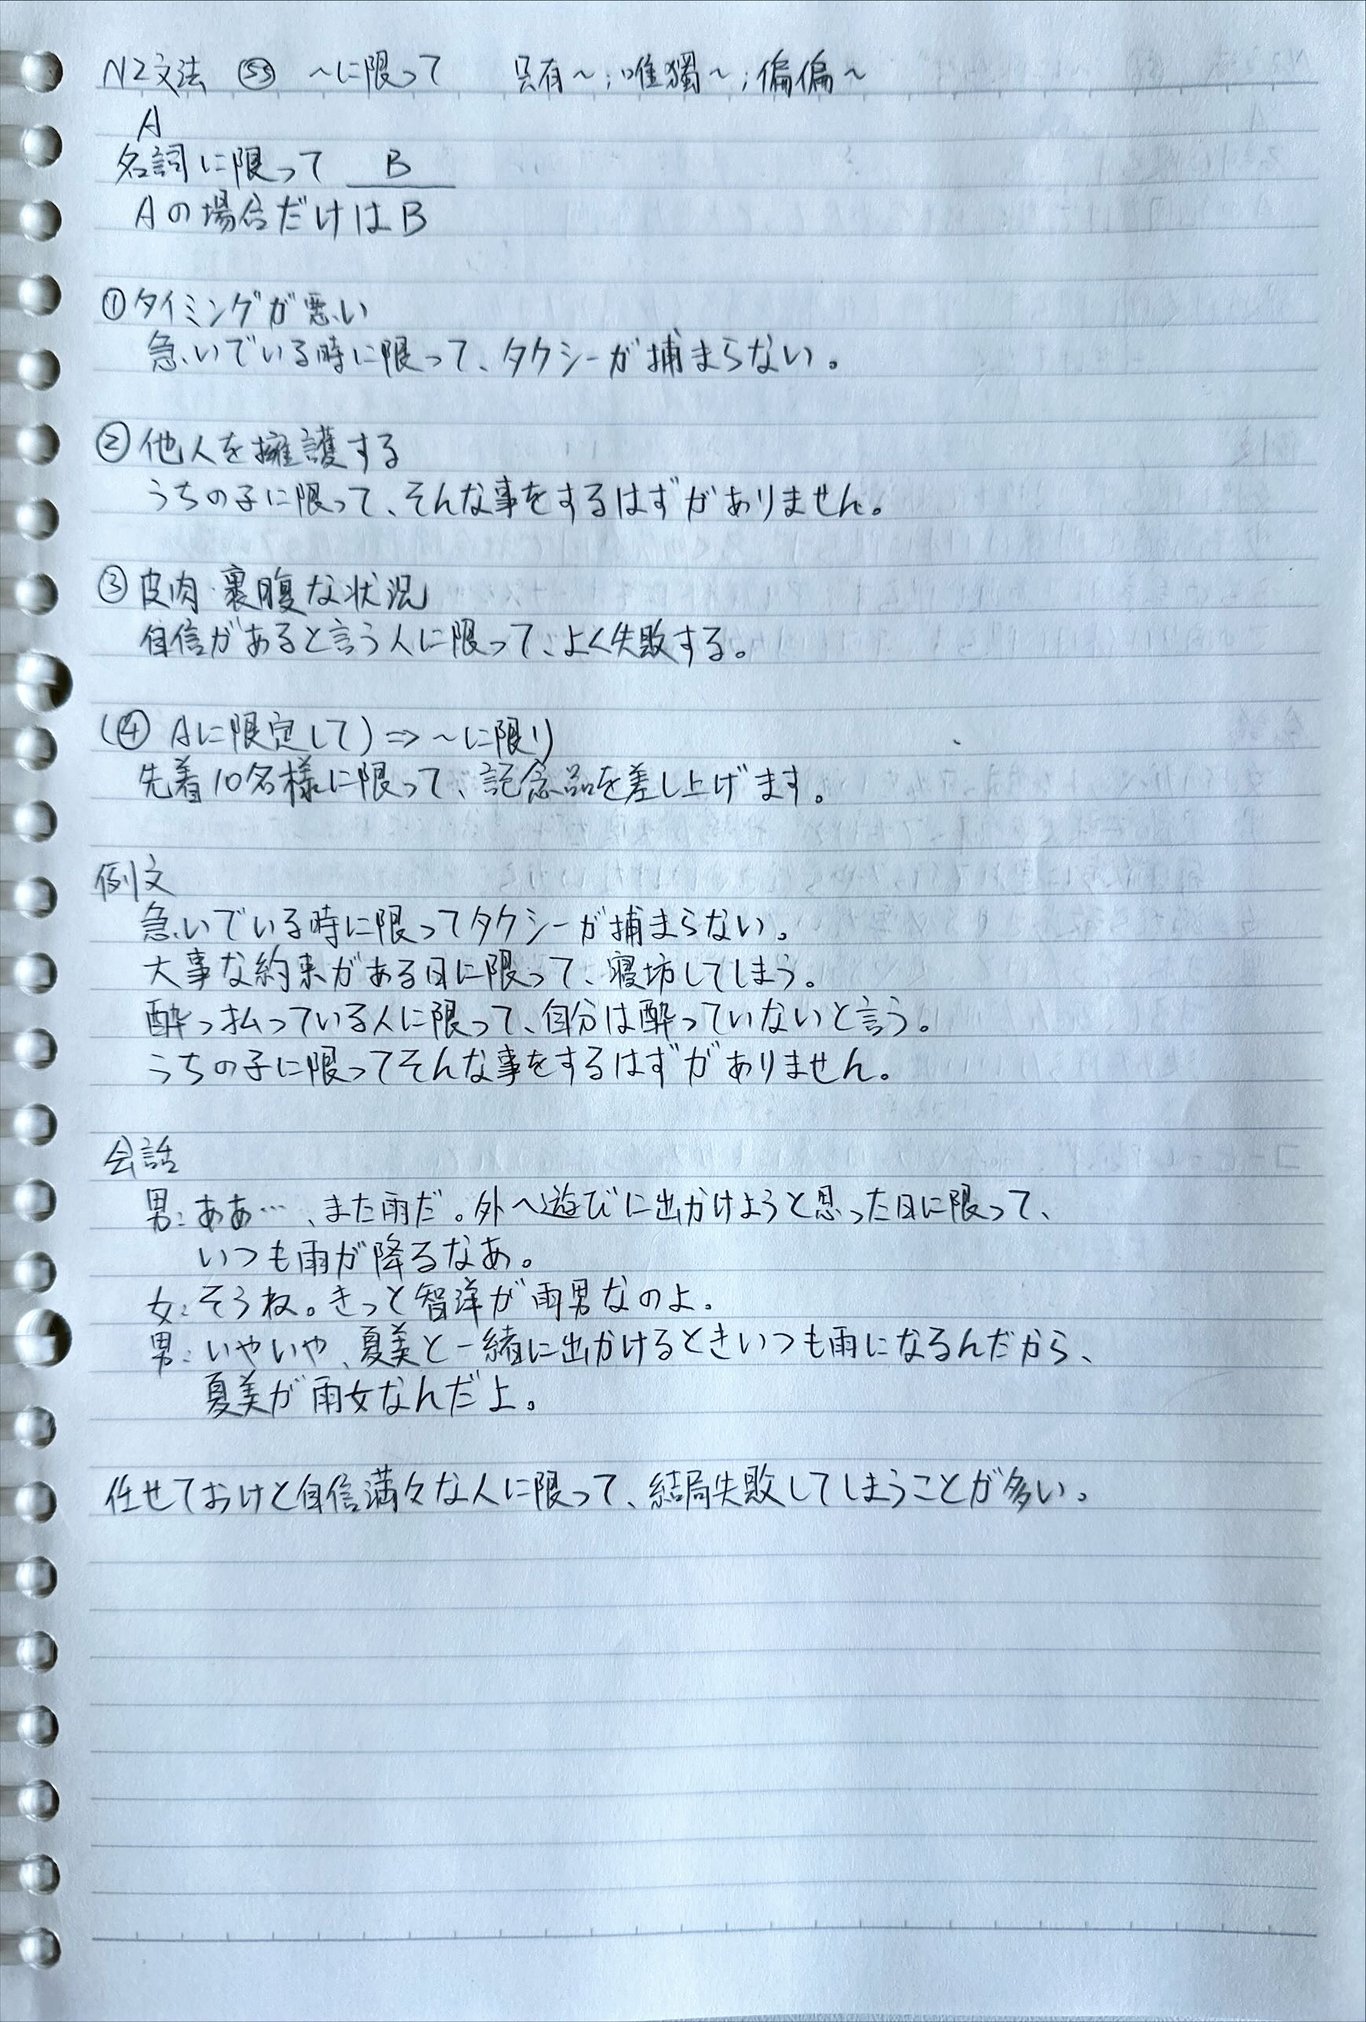 N2文法 ㊺ ～に限って 只有～;唯獨～;偏偏～
A
名詞に限って B
Aの場合だけはB
①タイミングが悪い
急いでいる時に限って、タクシーが捕まらない。
②他人を擁護する
うちの子に限って、そんな事をするはずがありません。
③皮肉・裏腹な状況
自信があると言う人に限って、よく失敗する。
(④ Aに限定して)⇒～に限り
先着10名様に限って、記念品を差し上げます。
例文
急いでいる時に限ってタクシーが捕まらない。
大事な約束がある日に限って、寝坊してしまう。
酔っ払っている人に限って、自分は酔っていないと言う。
うちの子に限ってそんな事をするはずがありません。
会話
男:ああ…、また雨だ。外へ遊びに出かけようと思った日に限って、
いつも雨が降るなあ。
女:そうね。きっと智洋が雨男なのよ。
男:いやいや、夏美と一緒に出かけるときいつも雨になるんだから、
夏美が雨女なんだよ。
任せておけと自信満々な人に限って、結局失敗してしまうことが多い。